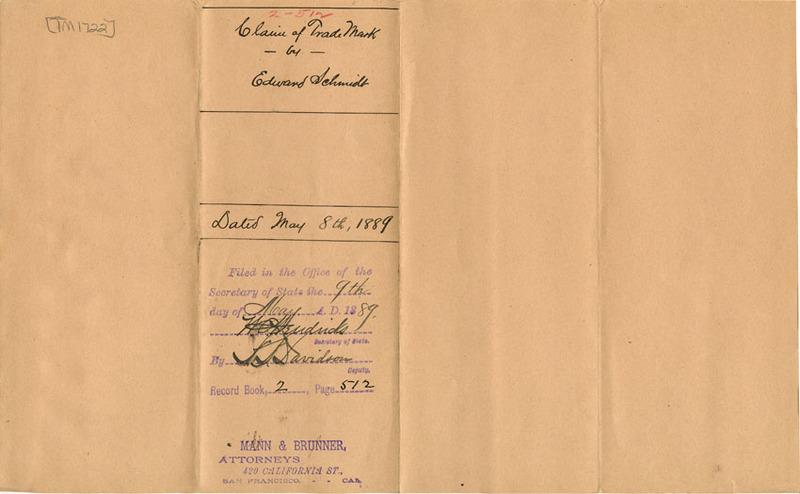 [TM1722]
2-512
Claim of Trade Mark
- by -
Edward Schmidt
Dated May 8th, 1889
Filed in the Office of the
Secretary of State the 9th
day of May A. D. 1889.
W C Hendricks
Secretary of State.
By Davidson
Deputy.
Record Book, 2, Page 512
MANN & BRUNNER,
ATTORNEYS
420 CALIFORNIA ST.,
SAN FRANCISCO, - - CAL